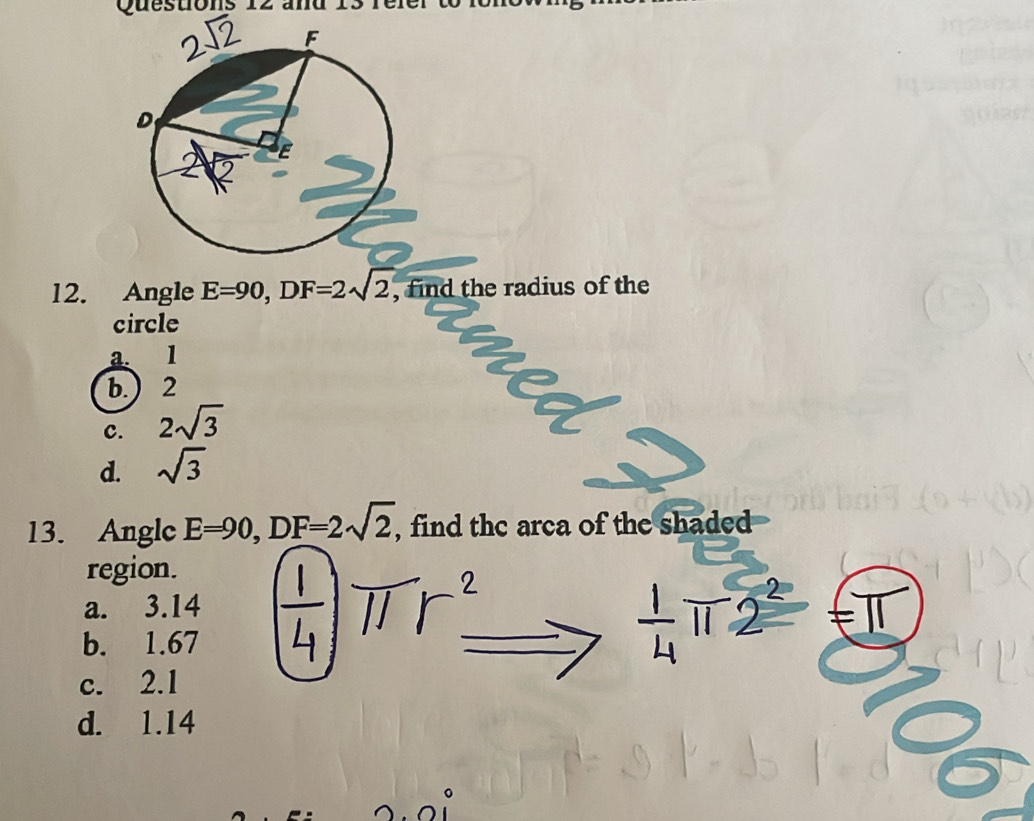 Questions 12 and 13 refer to following
2√2
F
D
E
2√2
12. Angle E=90, DF=2√2, find the radius of the
circle
a. 1
b. 2
c. 2√3
d. √3
13. Angle E=90, DF=2√2, find the area of the shaded
region.
a. 3.14
b. 1.67
c. 2.1
d. 1.14
1/4 π r² ⟹ 1/4 π 2² = π
Mr. Mohamed
0106